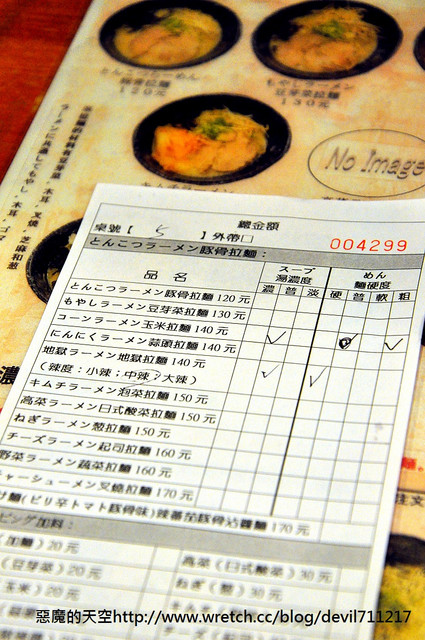 とんこつらーめん
豚骨拉麵
120元
もやしラーメン
豆芽菜拉麵
130元
No Image
總金額
桌號【 5 】外帶□
004299
とんこつラーメン豚骨拉麵：
品名
スープ
湯濃度
めん
麵硬度
濃 普 淡 硬 普 軟 粗
とんこつラーメン豚骨拉麵 120元
もやしラーメン豆芽菜拉麵 130元
コーンラーメン玉米拉麵 140元
にんにくラーメン蒜頭拉麵 140元
地獄ラーメン地獄拉麵 140元
（辣度：小辣；中辣；大辣）
キムチラーメン泡菜拉麵 150元
高菜ラーメン日式酸菜拉麵 150元
ねぎラーメン蔥拉麵 150元
チーズラーメン起司拉麵 160元
野菜ラーメン蔬菜拉麵 160元
ャーシューメン叉燒拉麵 170元
け麵(ピリ辛トマト豚骨味)辣番茄豚骨沾醬麵 170元
ピング加料：
加麵）20元
高菜（日式酸菜）30元
（豆芽菜）20元
ねぎ（蔥）30元
玉米）20元
惡魔的天空http://www.wretch.cc/blog/devil711217